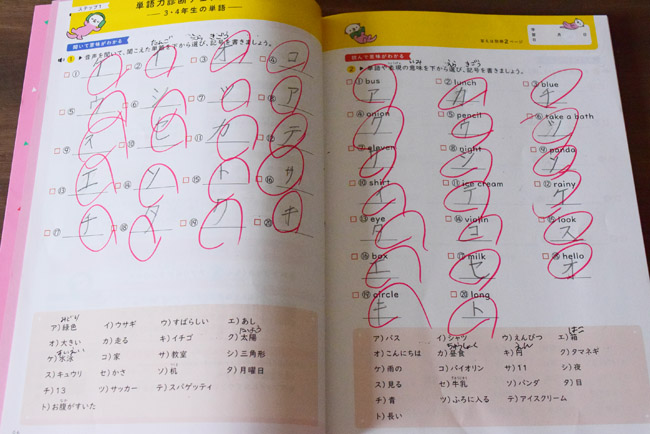 ステップ1
単語力診断テ
3・4年生の単語
聞いて意味がわかる
1 音声を聞いて、聞こえた単語を下から選び、記号を書きましょう。
① ② ③ オ ④ コ
⑤ ウ ⑥ シ ⑦ ツ ⑧ ア
⑨ ス ⑩ セ ⑪ カ ⑫ テ
⑬ エ ⑭ ソ ⑮ ト ⑯ サ
⑰ チ ⑱ タ ⑲ ⑳ キ
みどり
ア）緑色 イ）ウサギ ウ）すばらしい エ）あし
たいよう
オ）大きい カ）走る キ）イチゴ ク）太陽
すいえい
ケ）水泳 コ）家 サ）教室 シ）三角形
ス）キュウリ セ）かさ ソ）机 タ）月曜日
チ）13 ツ）サッカー テ）スパゲッティ
ト）お腹がすいた
答えは別冊2ページ
月 日
読んで意味がわかる
いみ えら きごう
2 単語や表現の意味を下から選び、記号を書きましょう。
① bus ② lunch ③ blue
ア カ チ
④ onion ⑤ pencil ⑥ take a bath
ク ウ ツ
⑦ eleven ⑧ night ⑨ panda
サ シ ソ
⑩ shirt ⑪ ice cream ⑫ rainy
イ テ ケ
⑬ eye ⑭ violin ⑮ look
タ コ ス
⑯ box ⑰ milk ⑱ hello
エ セ オ
⑲ circle ⑳ long
キ ト
はこ
ア）バス イ）シャツ ウ）えんぴつ エ）箱
ちゅうしょく えん
オ）こんにちは カ）昼食 キ）円 ク）タマネギ
ケ）雨の コ）バイオリン サ）11 シ）夜
ス）見る セ）牛乳 ソ）パンダ タ）目
チ）青 ツ）ふろに入る テ）アイスクリーム
ト）長い